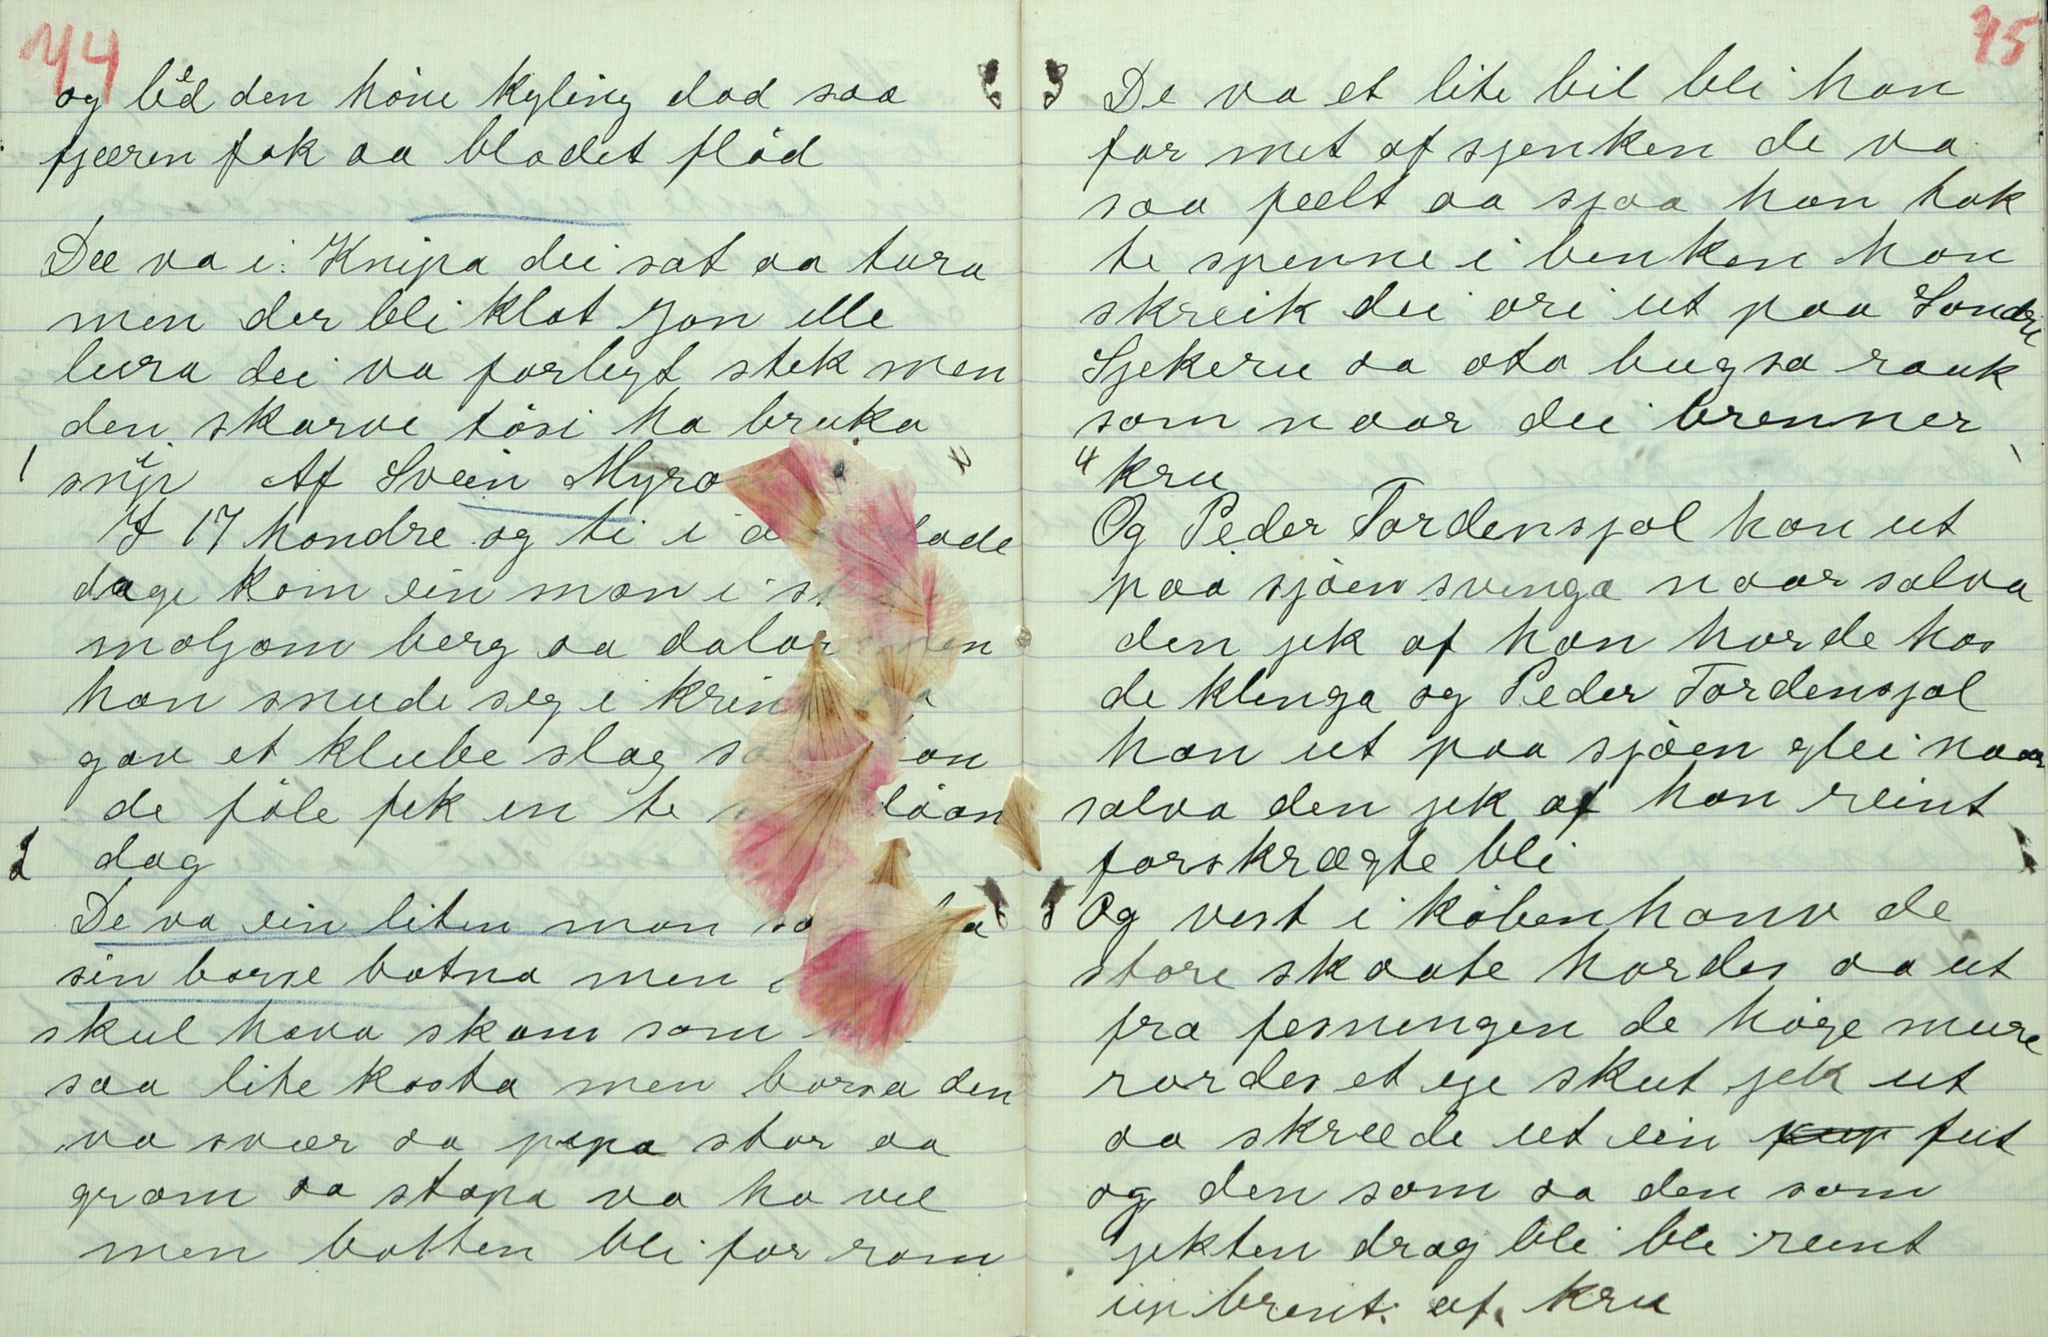 44
og lëd den höne kyling dod saa
fjæren fok aa blodet flöd
Dee va i Knipa dei sat aa tura
men der bli klat Jon elle
lura dei va forlegt stek men
den skarve tösi ha bruka
1 snÿp Af Svein Myro
I 17 hondre og ti i glade
dage kom ein man i
moljom berg aa dalar men
han snude seg i
gav et klube slag
de föle fek en te
2 dag
De va ein liten man
sin borse botna men
skul hava skam som
saa lite kosta men borsa den
va svær aa pipa stor aa
grom aa stapa va ha vel
men botten bli for rom
75
3 De va et lite bil bli han
for met af sjenken de va
saa feelt aa sjaa han tok
te spenne i benken han
skreik dei ori ut paa Sondre
Sjekeru aa ota bugsa rauk
som naar dei brenner
4 kru
Og Peder Tordensjol han ut
paa sjöen svinga naar salva
den jek af han horde hos
de klinga og Peder Tordensjol
han ut paa sjöen glei naar
salva den jek af han reint
forskrægte bli
Og vest i köbenhanv de
store skaate hordes aa ut
fra fesningen de höge mure
rordes et eje skut jek ut
aa skreede ut ein fut
og den som aa den som
jekten drag bli bli reint
up brent af kru